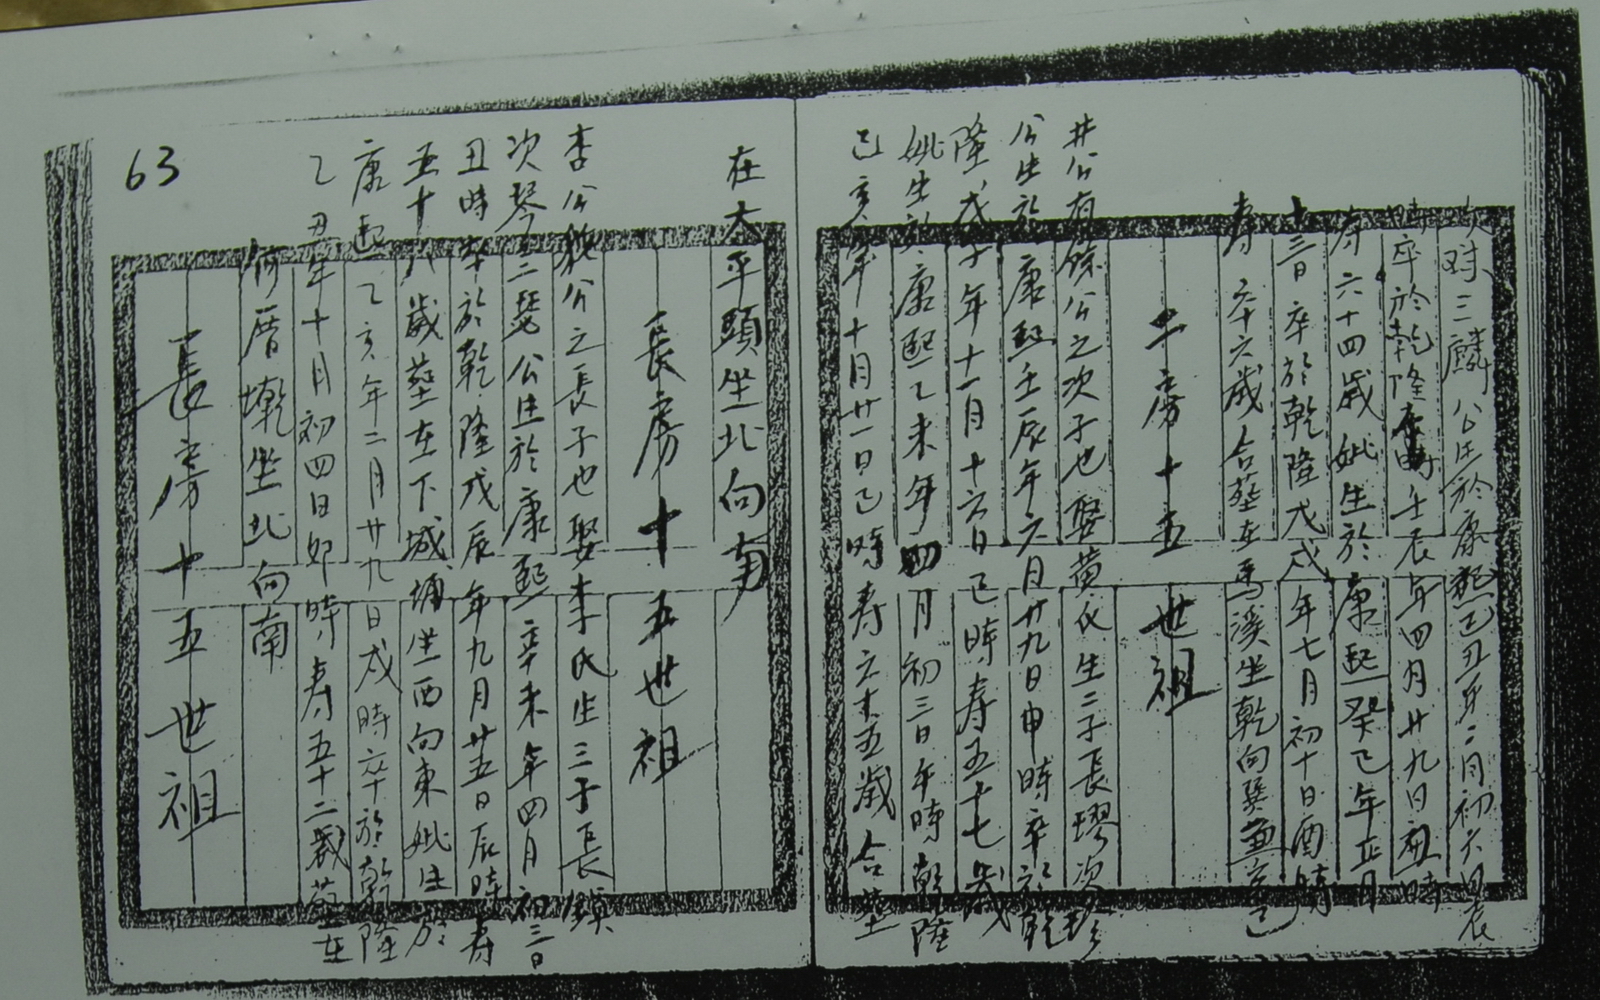 球三麟公生於康熙己丑年二月初六日辰
時卒於乾隆壬辰年四月廿九日丑時
寿六十四歲妣生於康熙癸巳年五月
十三日卒於乾隆戊戌年七月初十日酉時
寿六十六歲合葬在馬溪坐乾向巽兼亥巳
二房十五世祖
井公有餘公之次子也娶黄氏生二子長璆次珍
公生於康熙壬辰年六月廿九日申時卒於乾
隆戊子年十一月十六日巳時寿五十七歲
妣生於康熙乙未年四月初三日午時乾隆
己亥年十月廿一日巳時寿六十五歲合葬
在太平頭坐北向南
長房十五世祖
杏公公之長子也娶李氏生三子長鎮
次琴三瑟公生於康熙辛未年四月初三日
丑時卒於乾隆戊辰年九月廿五日辰時寿
五十八歲葬在下城埔坐西向東妣生於
康熙乙亥年二月廿九日戌時卒於乾隆
乙丑年十月初四日卯時寿五十二歲葬在
何厝坐北向南
長房十五世祖
63